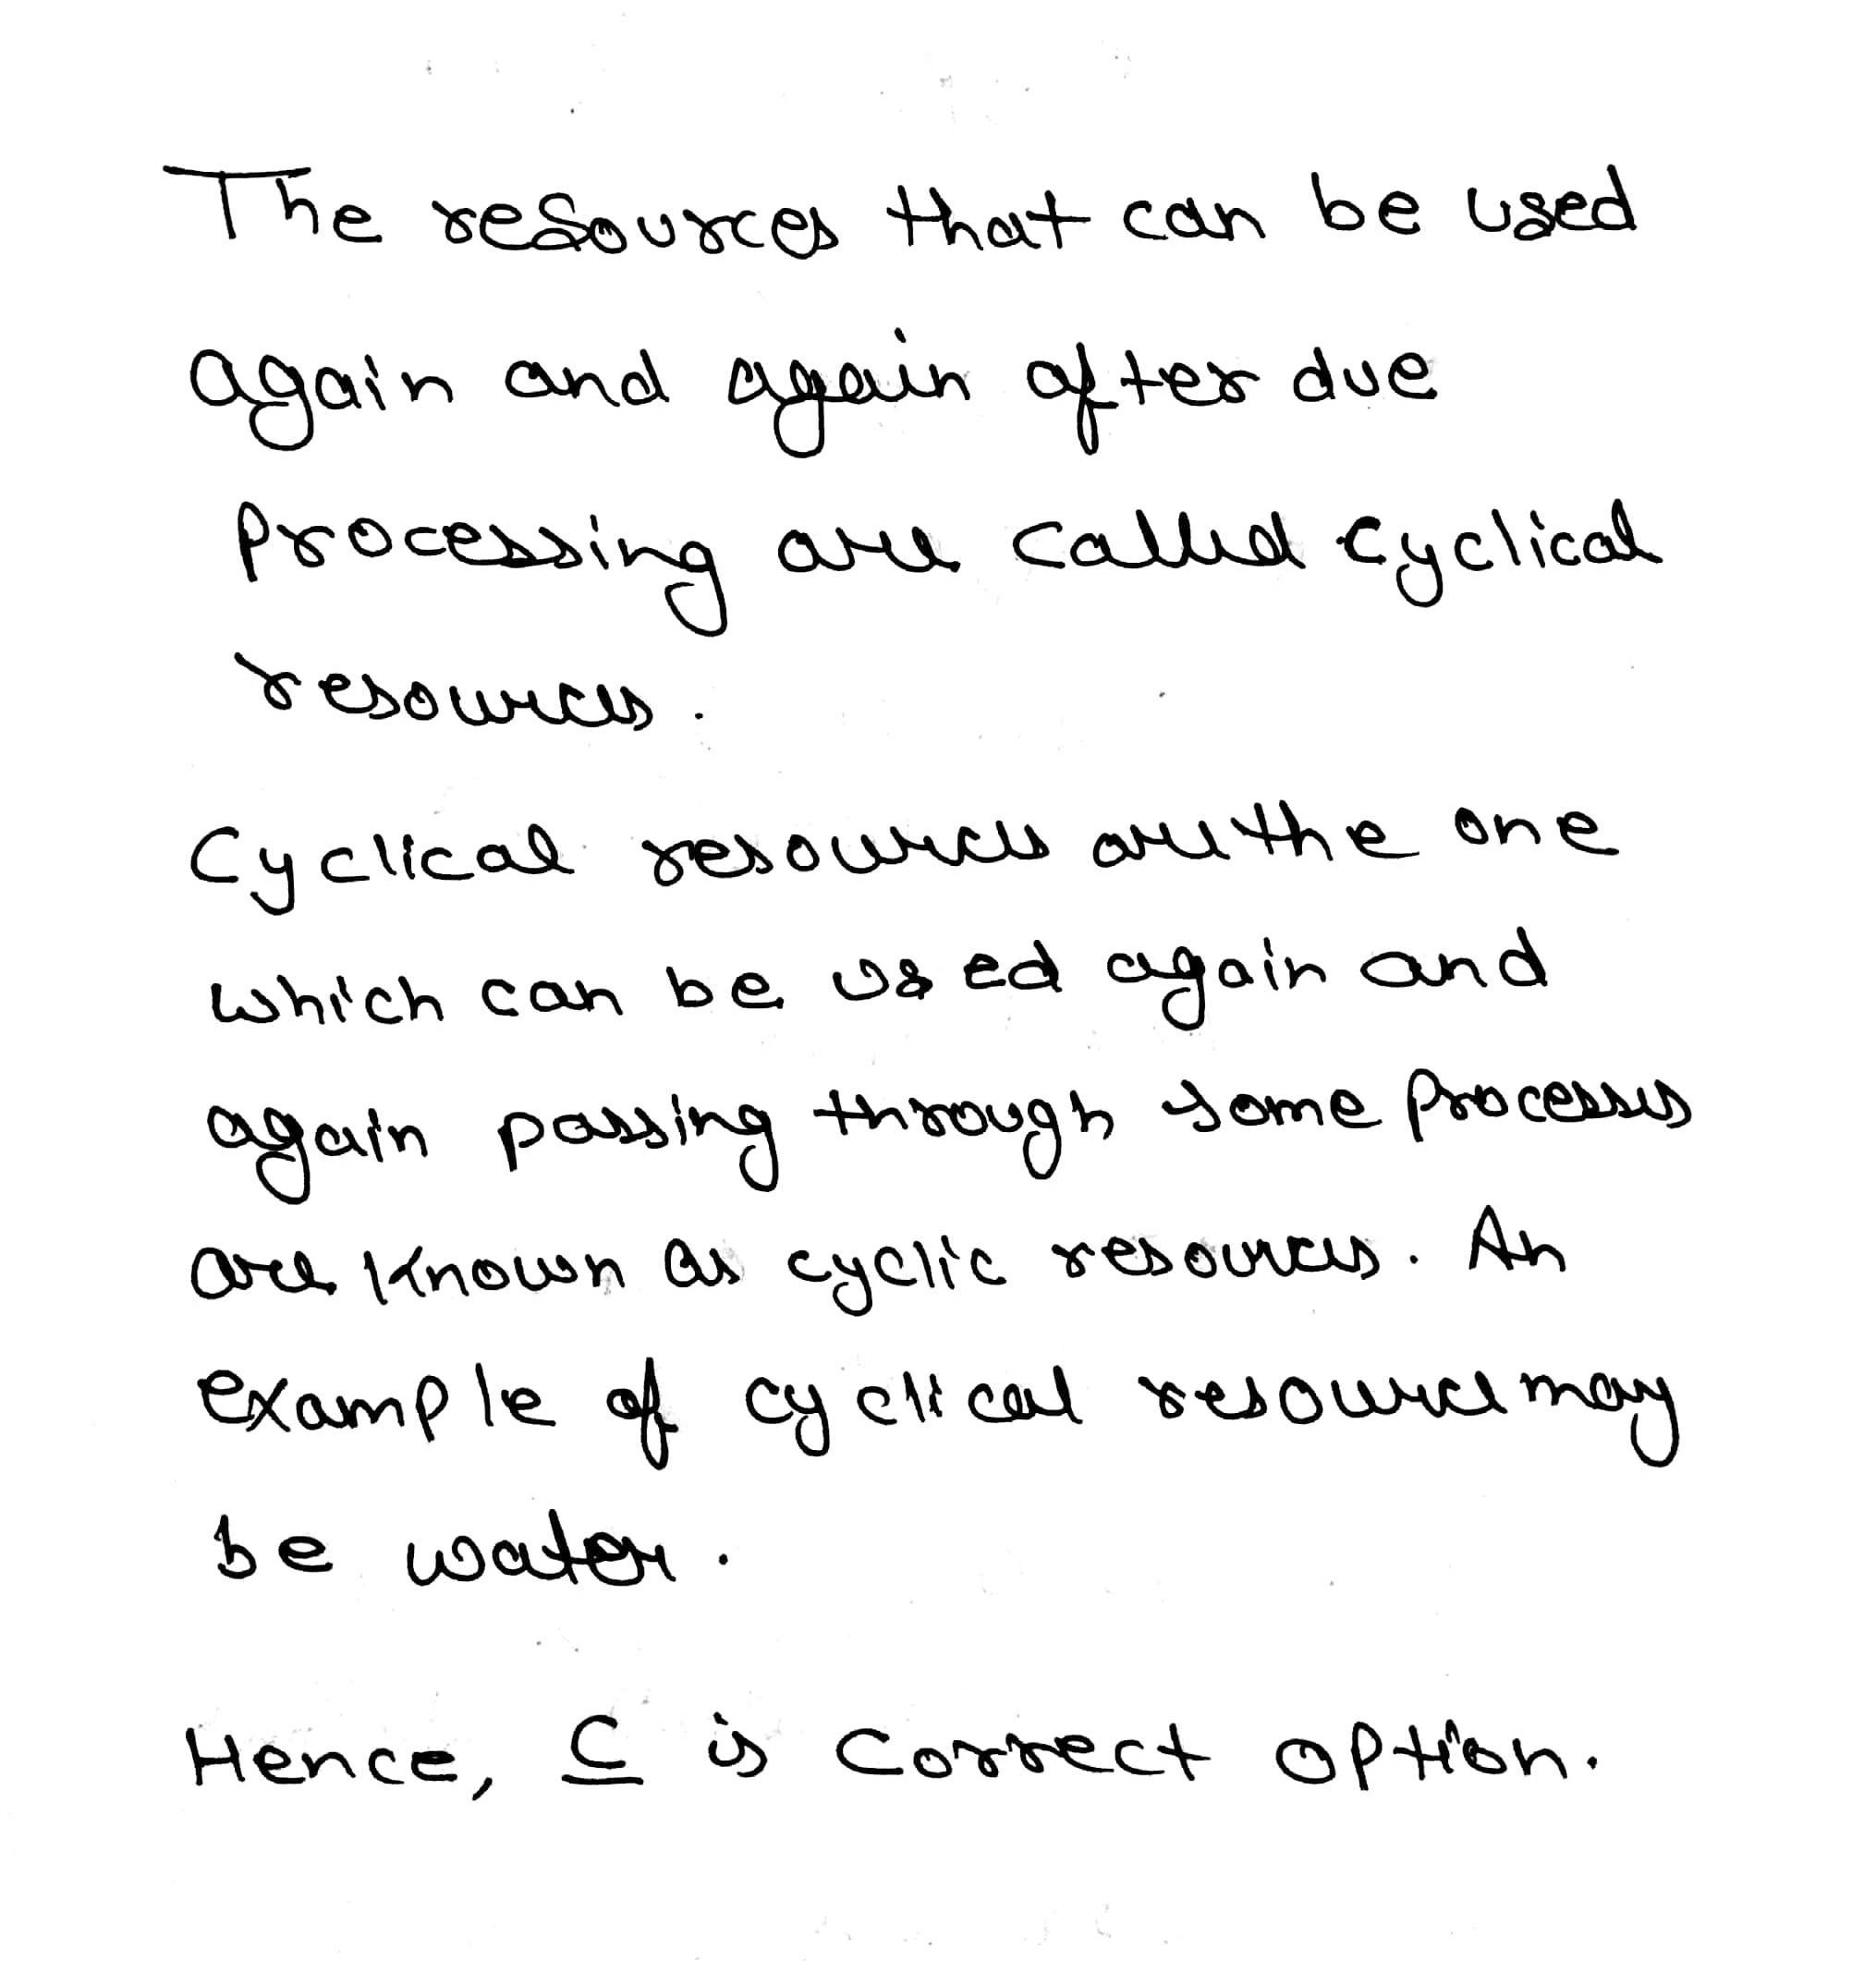 The resources that can be used
again and again after due
processing are called cyclical
resources.
Cyclical resources are the one
which can be used again and
again passing through some processes
are known as cyclic resources. An
example of cyclical resource may
be water.
Hence, C is correct option.